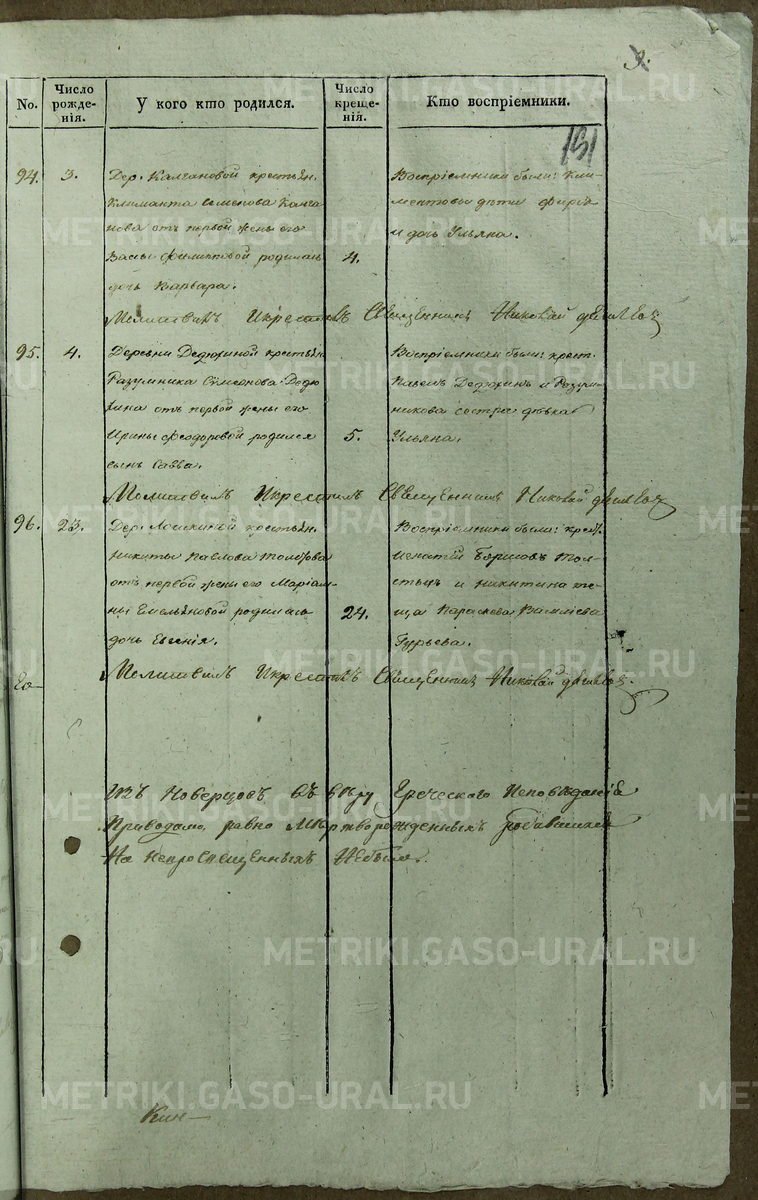 151
No.
Число рожде-
нія.
У кого кто родился.
Число креще-
нія.
Кто воспріемники.
94. 3. Дер. Калгановой крестьян.
Климанта Семенова Калга
нова отъ первой жены его
Васы Филиповой родилась
дочь Варвара.
4.
Воспріемники были: Кли-
ментовы дѣти
и дочь Ульяна.
Молитвилъ Икрестилъ Священникъ Николай
95. 4. Деревни Дедюхиной крестьян
Разумника Сѵмеонова Дедю
хина отъ первой жены его
Ирины Феодоровой родился
сынъ Савва.
5.
Воспріемники были: крест.
Дедюхинъ и Разум-
никова сестра дѣвка
Ульяна.
Молитвилъ Икрестилъ Священникъ Николай
96. 23. Дер. крестьян.
Никиты Павлова
отъ первой жены его Маріам-
ны Емельяновой родилась
дочь Евгенія.
24.
Воспріемники были: крест.
Игнатій Борисовъ Тол-
и Никитина те-
ща Параскева Василіева
Гурьева.
Молитвилъ Икрестилъ Священникъ Николай
Изъ Новерцовъ въ вѣру Греческаго Исповѣданія
Приводимо, равно Мертворожденныхъ родившихся
На Непросвещенныхъ Небыло.
METRIKI.GASO-URAL.RU